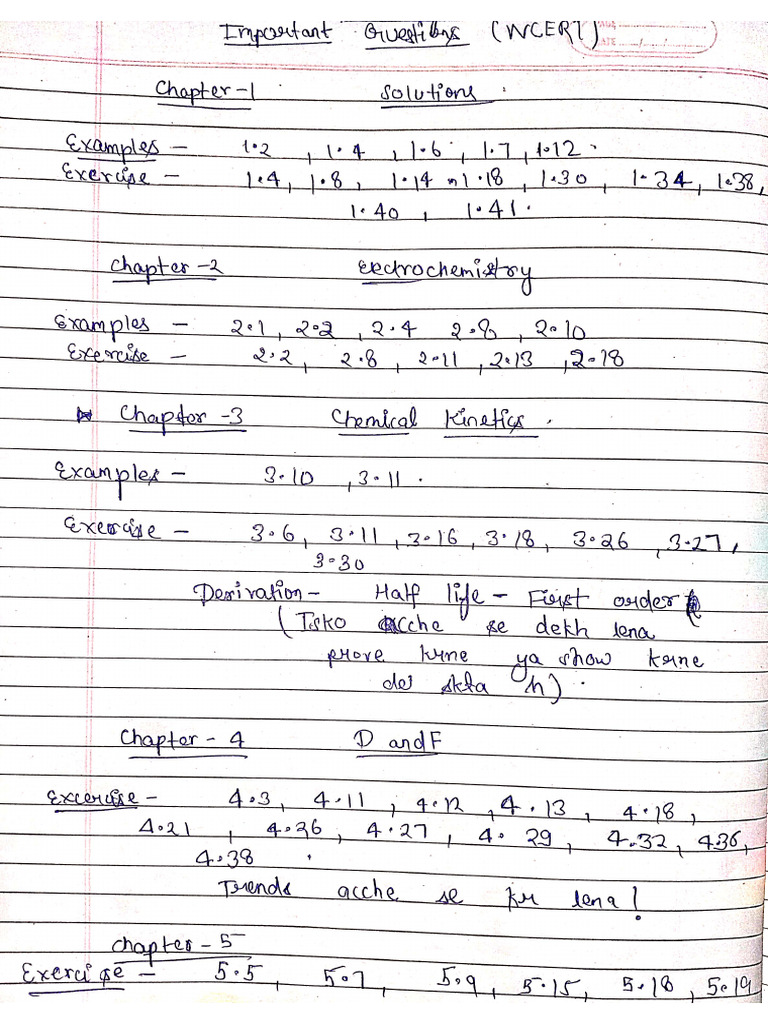 Important Questions (NCERT)
DATE
Chapter-1 Solutions
Examples – 1.2, 1.4, 1.6, 1.7, 1.12.
Exercise – 1.4, 1.8, 1.14 1.18, 1.30, 1.34, 1.38,
1.40, 1.41.
Chapter-2 Electrochemistry
Examples – 2.1, 2.2, 2.4 2.8, 2.10
Exercise – 2.2, 2.8, 2.11, 2.13, 2.18
Chaptor-3 Chemical Kinetics.
Examples – 3.10, 3.11.
Exercise – 3.6, 3.11, 3.16, 3.18, 3.26, 3.27,
3.30
Derivation – Half life – First order
(Isko acche se dekh lena
prove krne ya show krne
de skta h).
Chapter-4 D and F
Excercise – 4.3, 4.11, 4.12, 4.13, 4.18,
4.21, 4.26, 4.27, 4.29, 4.32, 4.36,
4.38.
Trends acche se kr lena!
Chapter-5
Exercise – 5.5, 5.7, 5.9, 5.15, 5.18, 5.19